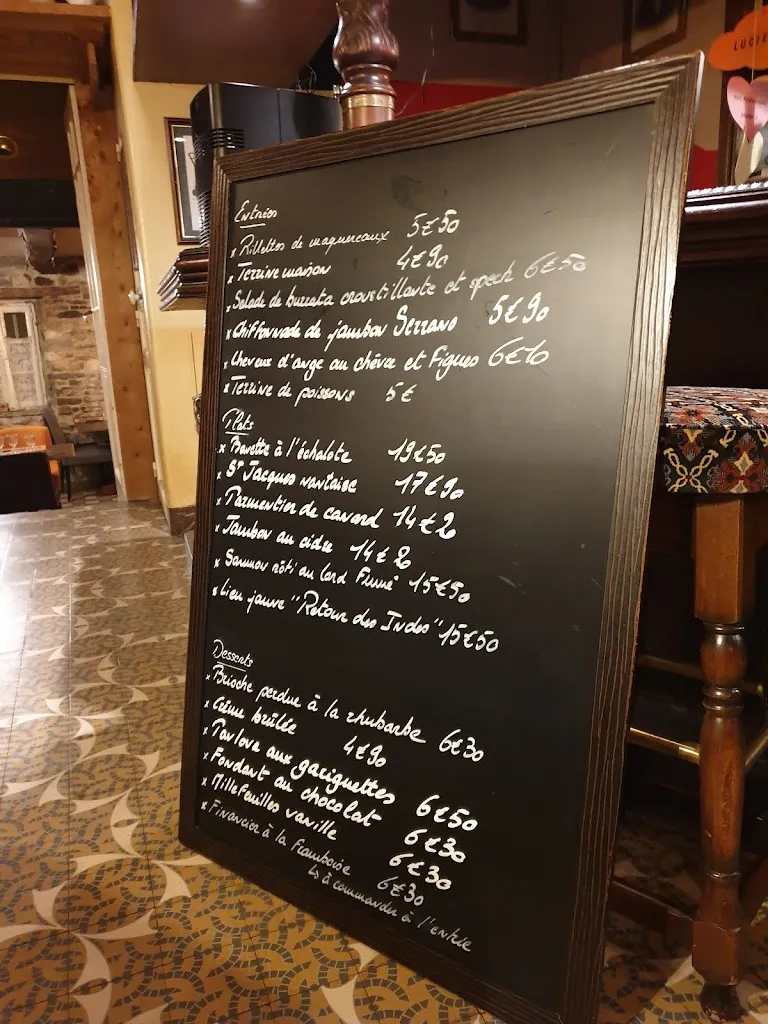 LUCIE
Entrées
x Rillettes de maquereaux 5€50
x Terrine maison 4€90
x Salade de burrata croustillante et speck 6€50
x Chiffonnade de jambon Serrano 5€90
x Cheveux d'ange au chèvre et Figues 6€10
x Terrine de poissons 5€
Plats
x Bavette à l'échalote 19€50
x St Jacques nantaise 17€90
x Parmentier de canard 14€20
x Jambon au cidre 14€20
x Saumon rôti au lard Fumé 15€90
x Lieu jaune "Retour des Indes" 15€50
Desserts
x Brioche perdue à la rhubarbe 6€30
x Crème brûlée 4€90
x Pavlova aux gariguettes 6€50
x Fondant au chocolat 6€30
x Millefeuilles vanille 6€30
x Financier à la framboise 6€30
↳ à commander à l'entrée